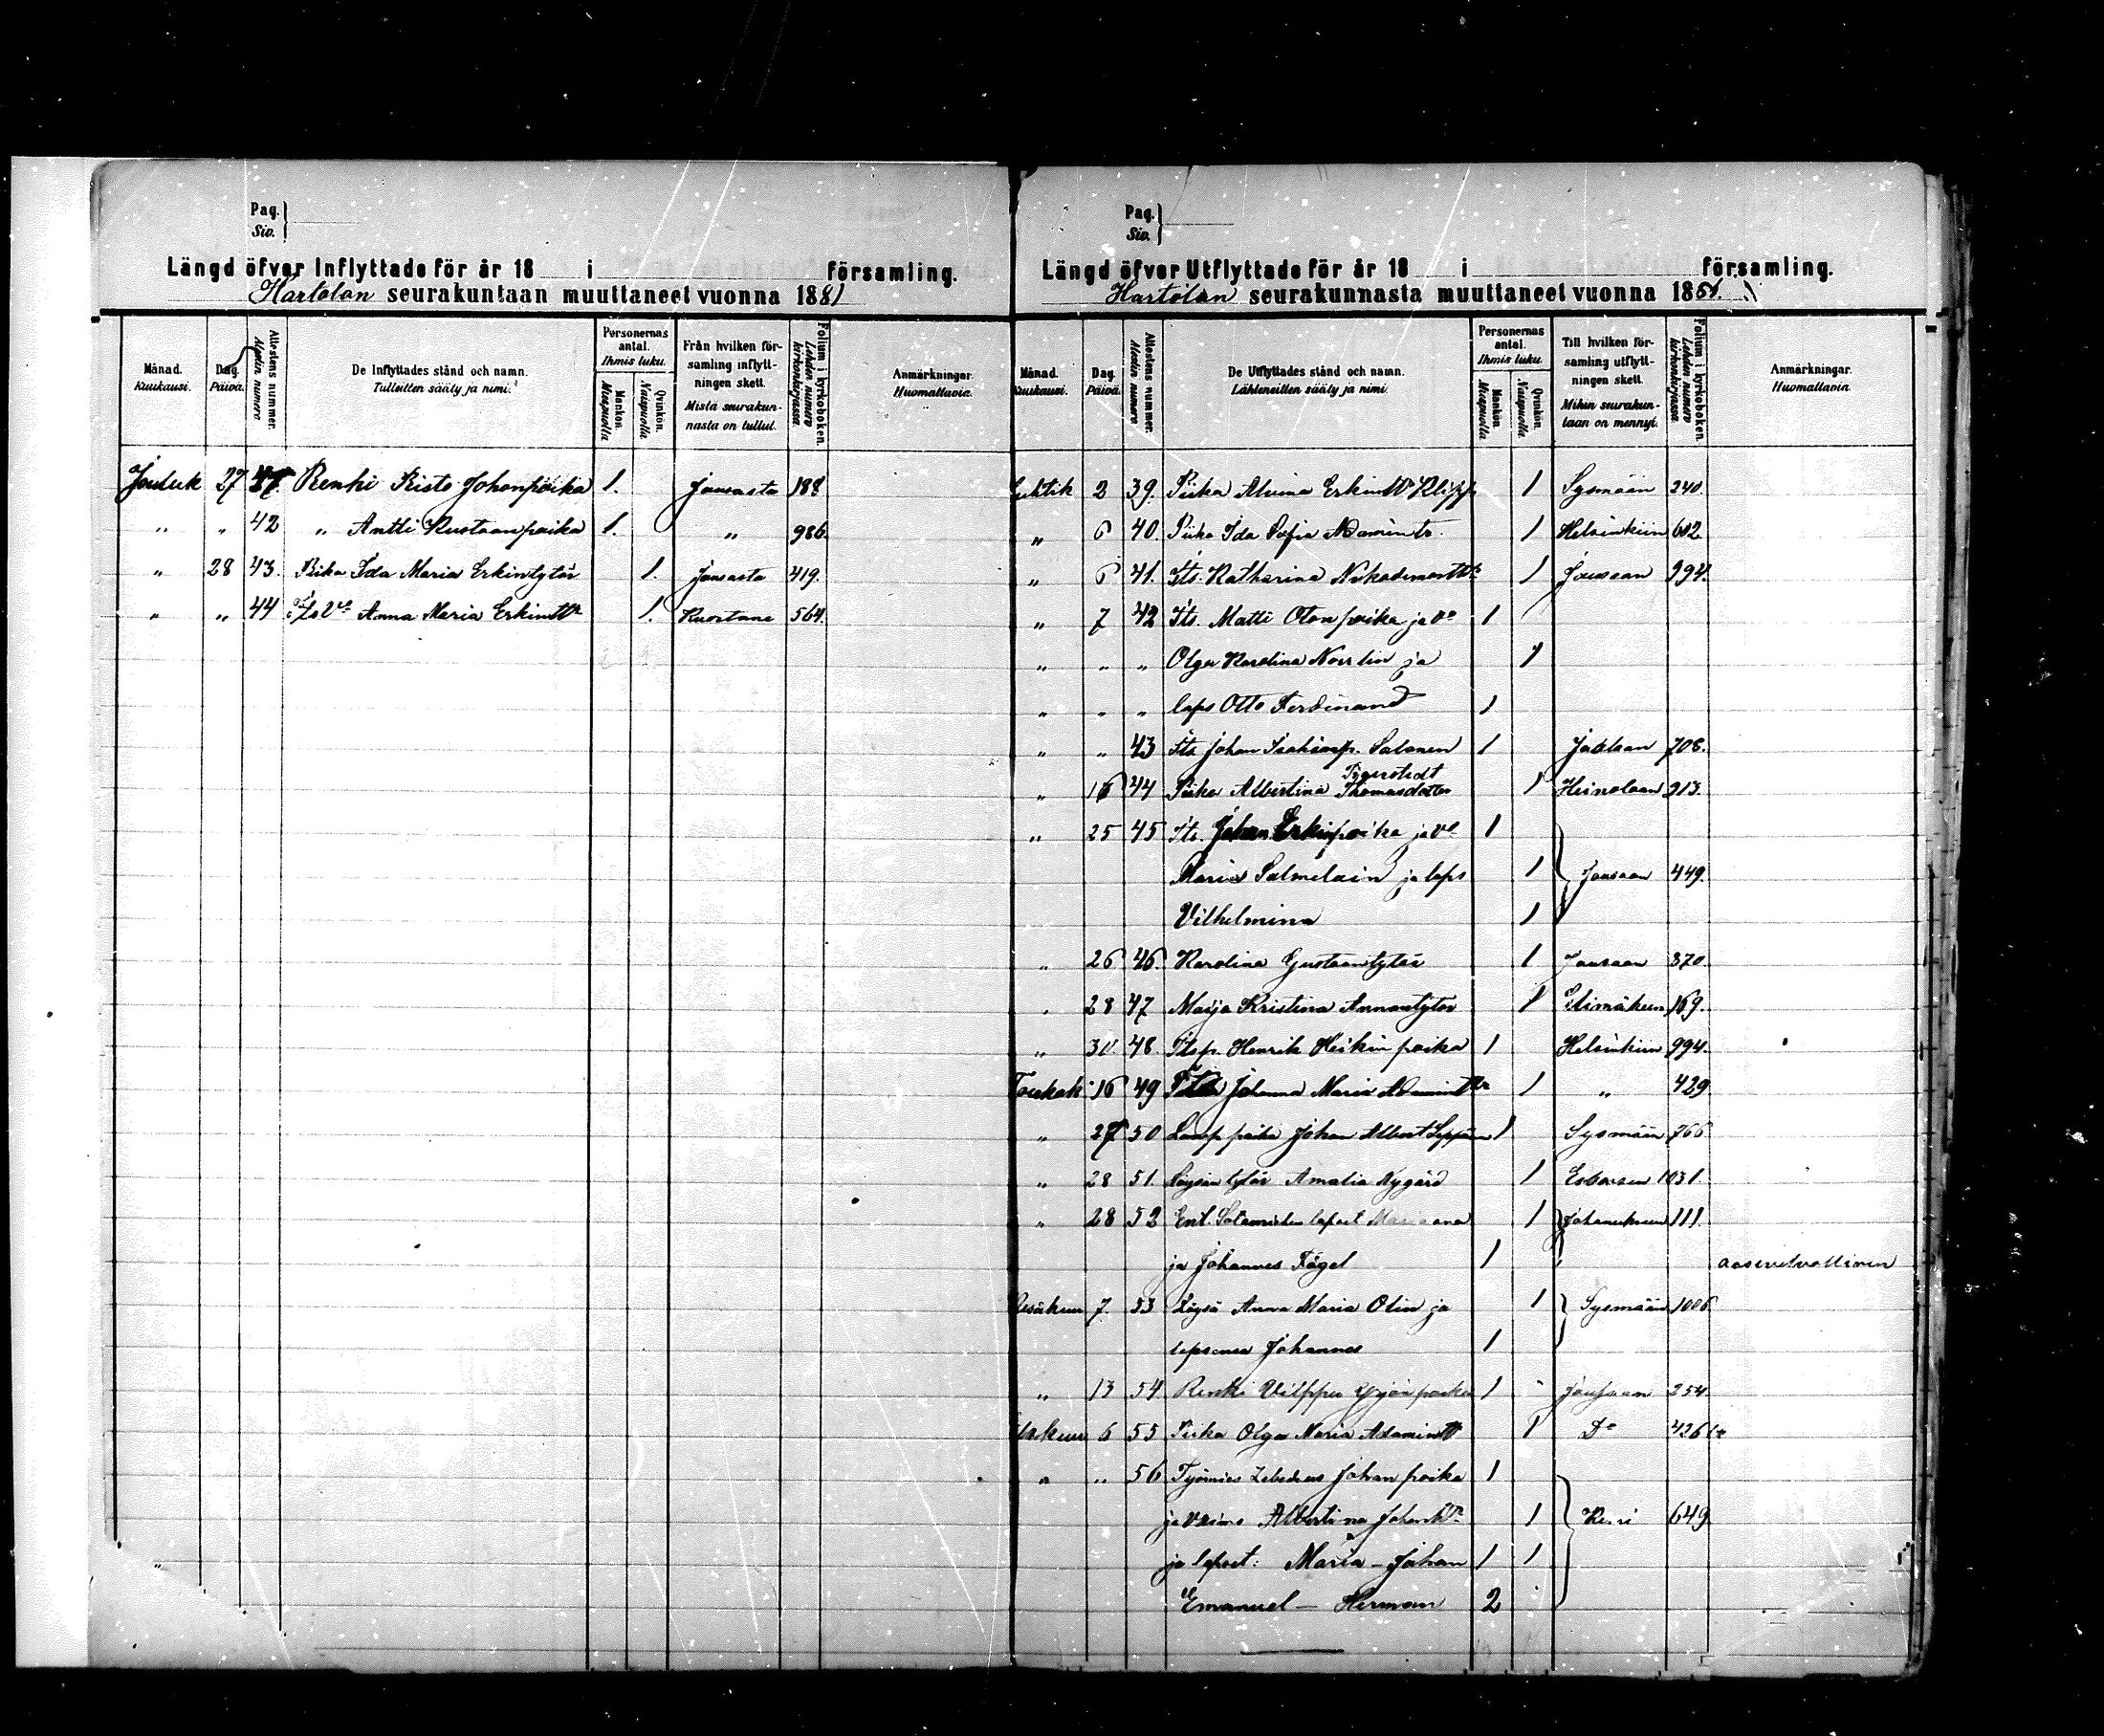 Pag.
Siv.
Längd öfver Inflyttade för år 18 i församling.
Hartolan seurakuntaan muuttaneet vuonna 1881
Månad. Kuukausi.
Dag. Päivä.
Attestens nummer. Alestin numero.
De Inflyttades stånd och namn. Tulleitten sääty ja nimi.
Personernas antal. Ihmis luku.
Mankön. Miespuolia
Qvinkön. Naispuolia
Från hvilken församling inflyttningen skett. Mistä seurakunnasta on tullut.
Folium i kyrkoboken. Lehden numero kirkonkirjassa.
Anmärkningar. Huomattavia.
Jouluk 27 Renki Risto Johanpoika 1. Jousasta 188
" " 42 " Antti Kustaanpoika 1. " 986.
" 28 43. Piika Ida Maria Erkintytär 1. Jousasta 419.
" " 44 Anna Maria Erkintr 1. 564.
Pag.
Siv.
Längd öfver Utflyttade för år 18 i församling.
Hartolan seurakunnasta muuttaneet vuonna 188
Månad. Kuukausi.
Dag. Päivä.
Attestens nummer. Alestin numero
De Utflyttades stånd och namn. Lähteneitten sääty ja nimi.
Personernas antal. Ihmis luku.
Mankön. Miespuolia
Qvinkön. Naispuolia
Till hvilken församling utflyttningen skett. Mihin seurakuntaan on mennyt.
Folium i kyrkoboken. Lehden numero kirkonkirjassa
Anmärkningar. Huomattavia.
Huhtik 2 39. Piika Alvina Erkintr Klipp 1 Sysmään 240.
" 6 40. Piika Ida Sofia Adamintr. 1 Helsinkiin 602
" 6 41. Its. Katharina 1 Jousaan 994.
" 7 42 Its. Matti Oton poika ja vo 1
" " " Olga Karolina Norrlin ja 1
" " " laps Otto Ferdinand 1
" " 43 Its Johan Salonen 1 708.
" 16 44 Piika Albertina Thomasdotter Tigerstedt 1 Heinolaan 913.
" 25 45 Its. Johan Erkinpoika ja vo 1
Maria Salmelain ja laps 1 Jousaan 449.
Vilhelmina 1
" 26 46. Karolina Gustaantytär 1 Jousaan 370.
" 28 47 Maija Kristina Annantytär 1 Elimäkeen 169.
" 30. 48. Itsp. Henrik Heikin poika 1 Helsinkiin 994.
Toukok 16 49 Johanna Maria Adamintr 1 " 429
" 27 50 Lamp poika Johan Albert Seppänen 1 Sysmään 766
" 28 51. Löysän tytär Amalia Nygård 1 1031
" 28 52 Ent. Sotamiehen lapset Mariana 1 Johanneksen 111.
ja Johannes Fågel 1
Kesäkuu 7. 53 Löysä Anna Maria Olin ja 1 Sysmään 1006
lapsensa Johannes 1
" 13 54. Renki Vilppu Yrjön poika 1 Jousaan 254
Elokuu 6 55 Piika Olga Maria Adamintr 1 Do 426
" " 56 Työmies Zebedeus Johan poika 1
ja vaimo Albertina Johantr 1 649
ja lapset: Maria – Johan 1 1
Emanuel – Herman 2